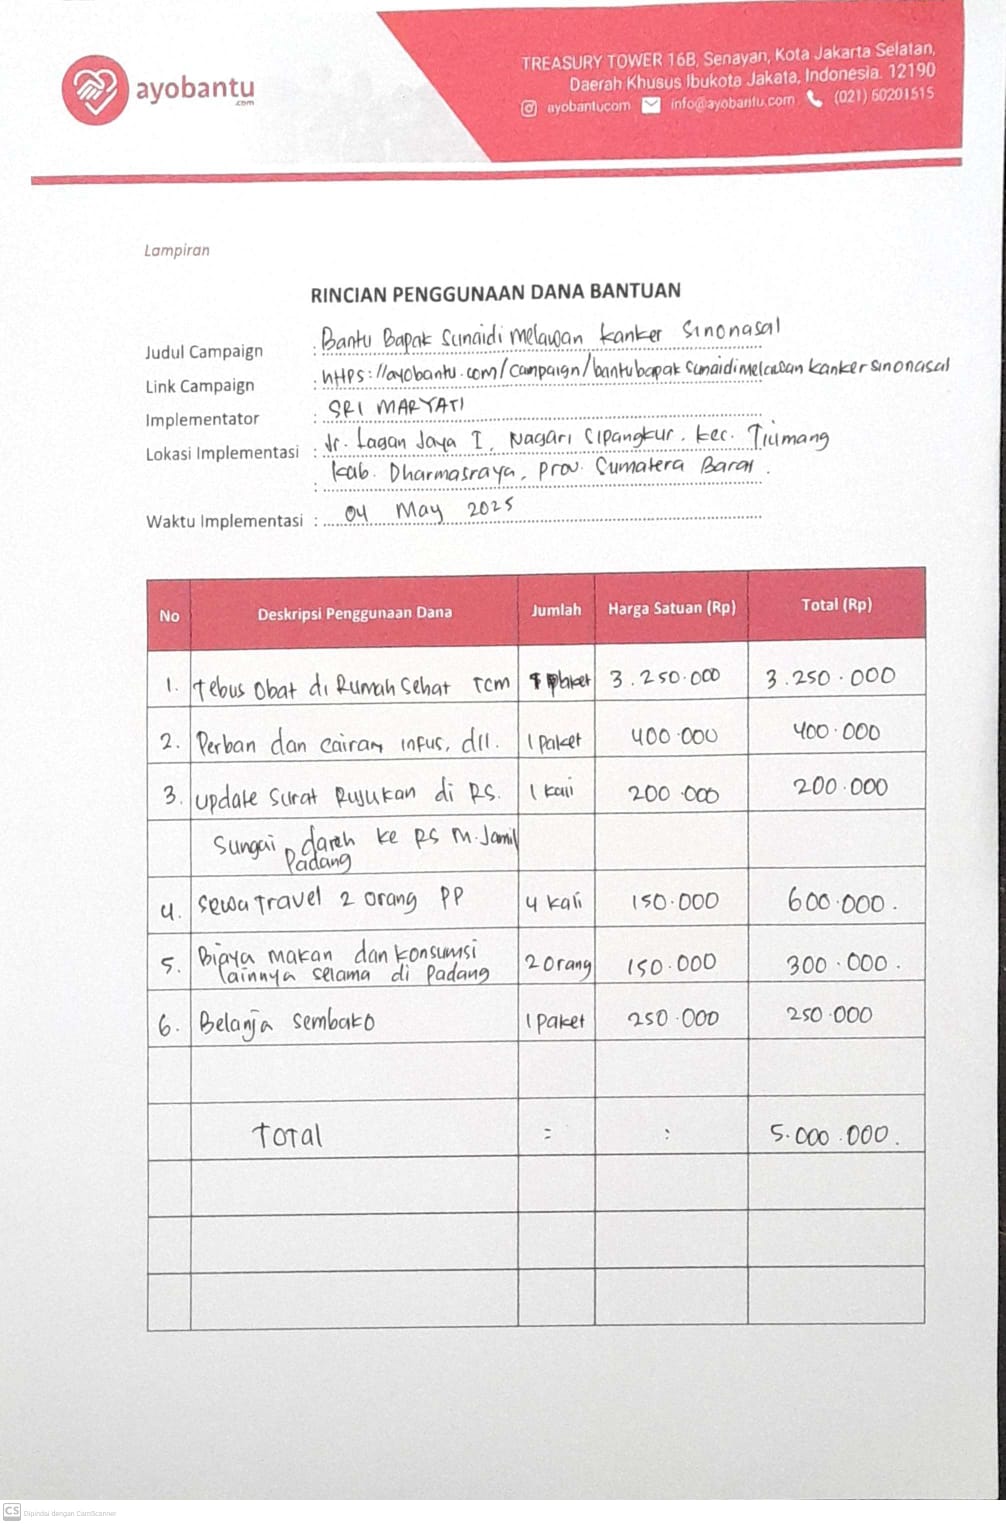 ayobantu
.com
TREASURY TOWER 16B, Senayan, Kota Jakarta Selatan,
Daerah Khusus Ibukota Jakata, Indonesia. 12190
ayobantucom info@ayobantu.com (021) 50201515
Lampiran
RINCIAN PENGGUNAAN DANA BANTUAN
Judul Campaign : Bantu Bapak Sunaidi Melawan kanker Sinonasal
Link Campaign : https://ayobantu.com/campaign/bantubapaksunaidimelawankankersinonasal
Implementator : SRI MARYATI
Lokasi Implementasi : Jr. Lagan Jaya I, Nagari Sipangkur. kec. Tiumang
: kab. Dharmasraya, prov. Sumatera Barat.
Waktu Implementasi : 04 May 2025
No Deskripsi Penggunaan Dana Jumlah Harga Satuan (Rp) Total (Rp)
1. Tebus Obat di Rumah Sehat TCM 1 Paket 3.250.000 3.250.000
2. Perban dan cairan infus, dll. 1 paket 400.000 400.000
3. update surat Rujukan di RS. 1 kali 200.000 200.000
Sungai dareh ke RS M.Jamil
Padang
4. sewa travel 2 orang PP 4 kali 150.000 600.000.
5. Biaya makan dan konsumsi 2 Orang 150.000 300.000.
lainnya selama di Padang
6. Belanja sembako 1 paket 250.000 250.000
TOTAL = : 5.000.000.
CS Dipindai dengan CamScanner